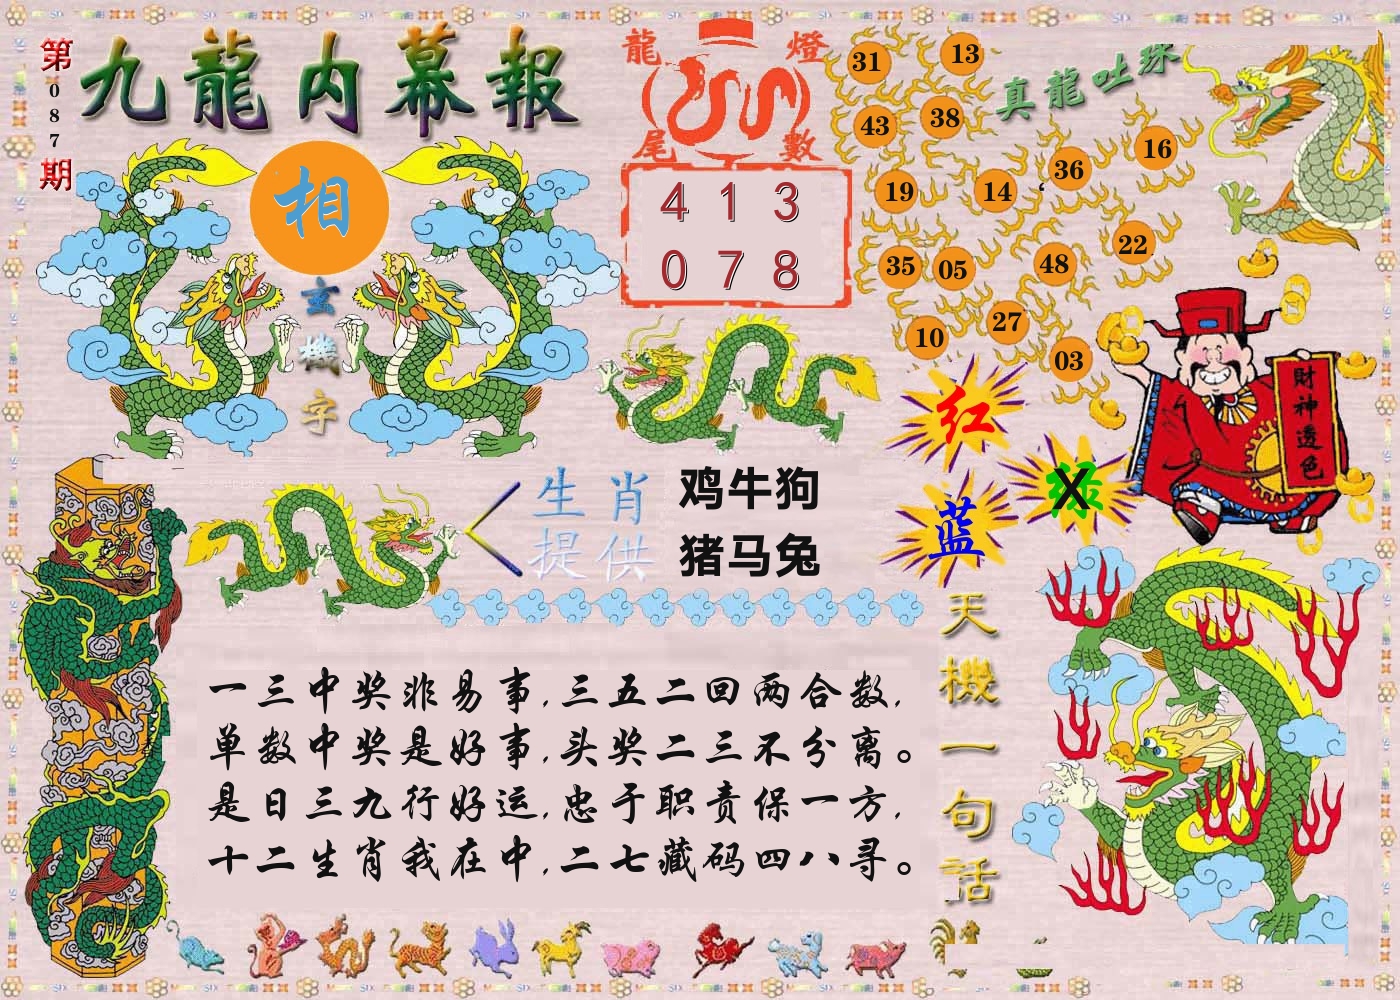 第087期
九龍内幕報
相
玄機字
龍燈
尾數
4 1 3
0 7 8
真龍吐珠
31 13
43 38
16
36
19 14
22
35 05 48
27
10 03
財神透色
红
绿
X
蓝
生肖
提供
鸡牛狗
猪马兔
天機一句话
一三中奖非易事,三五二回两合数,
单数中奖是好事,头奖二三不分离。
是日三九行好运,忠于职责保一方,
十二生肖我在中,二七藏码四八寻。